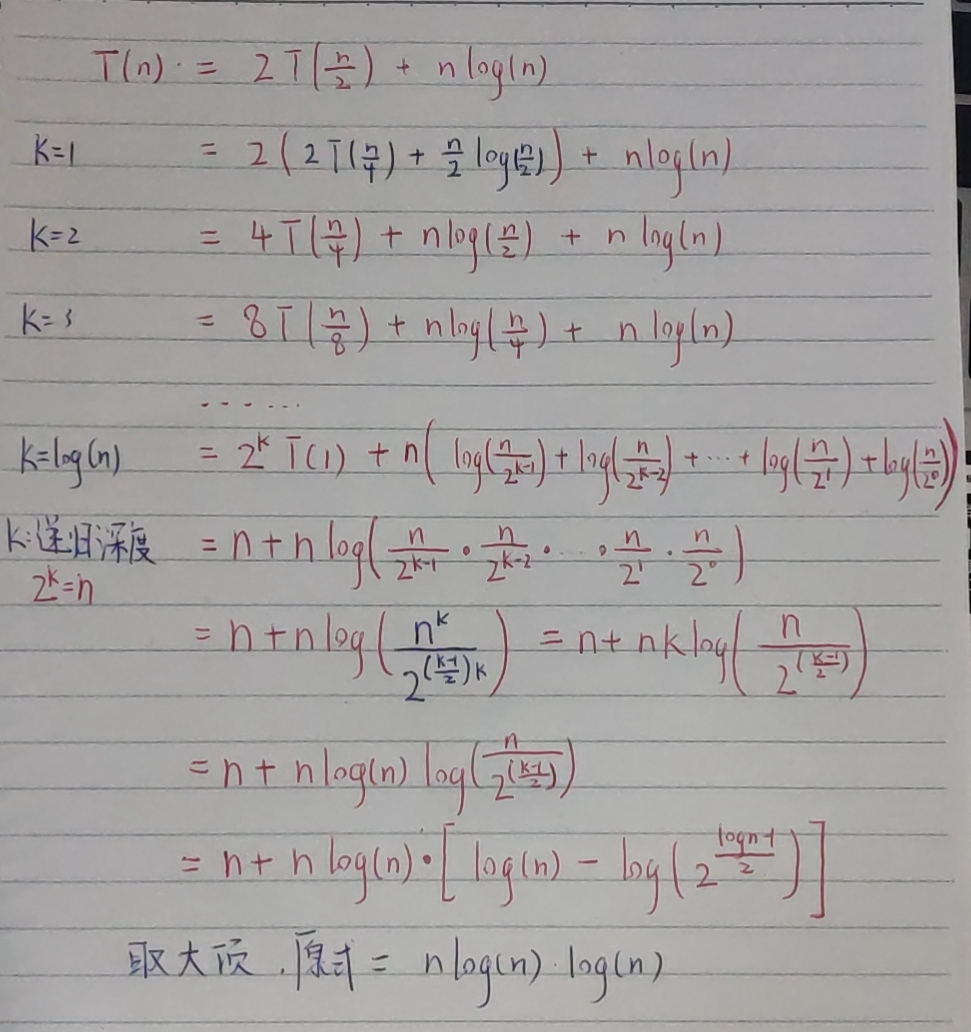 T(n) = 2T(n/2) + n log(n)
K=1 = 2(2T(n/4) + n/2 log(n/2)) + nlog(n)
K=2 = 4T(n/4) + nlog(n/2) + n log(n)
K=3 = 8T(n/8) + nlog(n/4) + n log(n)
......
K=log(n) = 2^k T(1) + n(log(n/2^(k-1)) + log(n/2^(k-2)) + ... + log(n/2^1) + log(n/2^0))
K:递归深度 = n + n log(n/2^(k-1) · n/2^(k-2) · ... · n/2^1 · n/2^0)
2^k=n
= n + n log(n^k/2^((k-1)/2)k) = n + nk log(n/2^((k-1)/2))
= n + n log(n) log(n/2^((k-1)/2))
= n + n log(n)·[log(n) - log(2^((logn-1)/2))]
取大项.原式 = n log(n)·log(n)